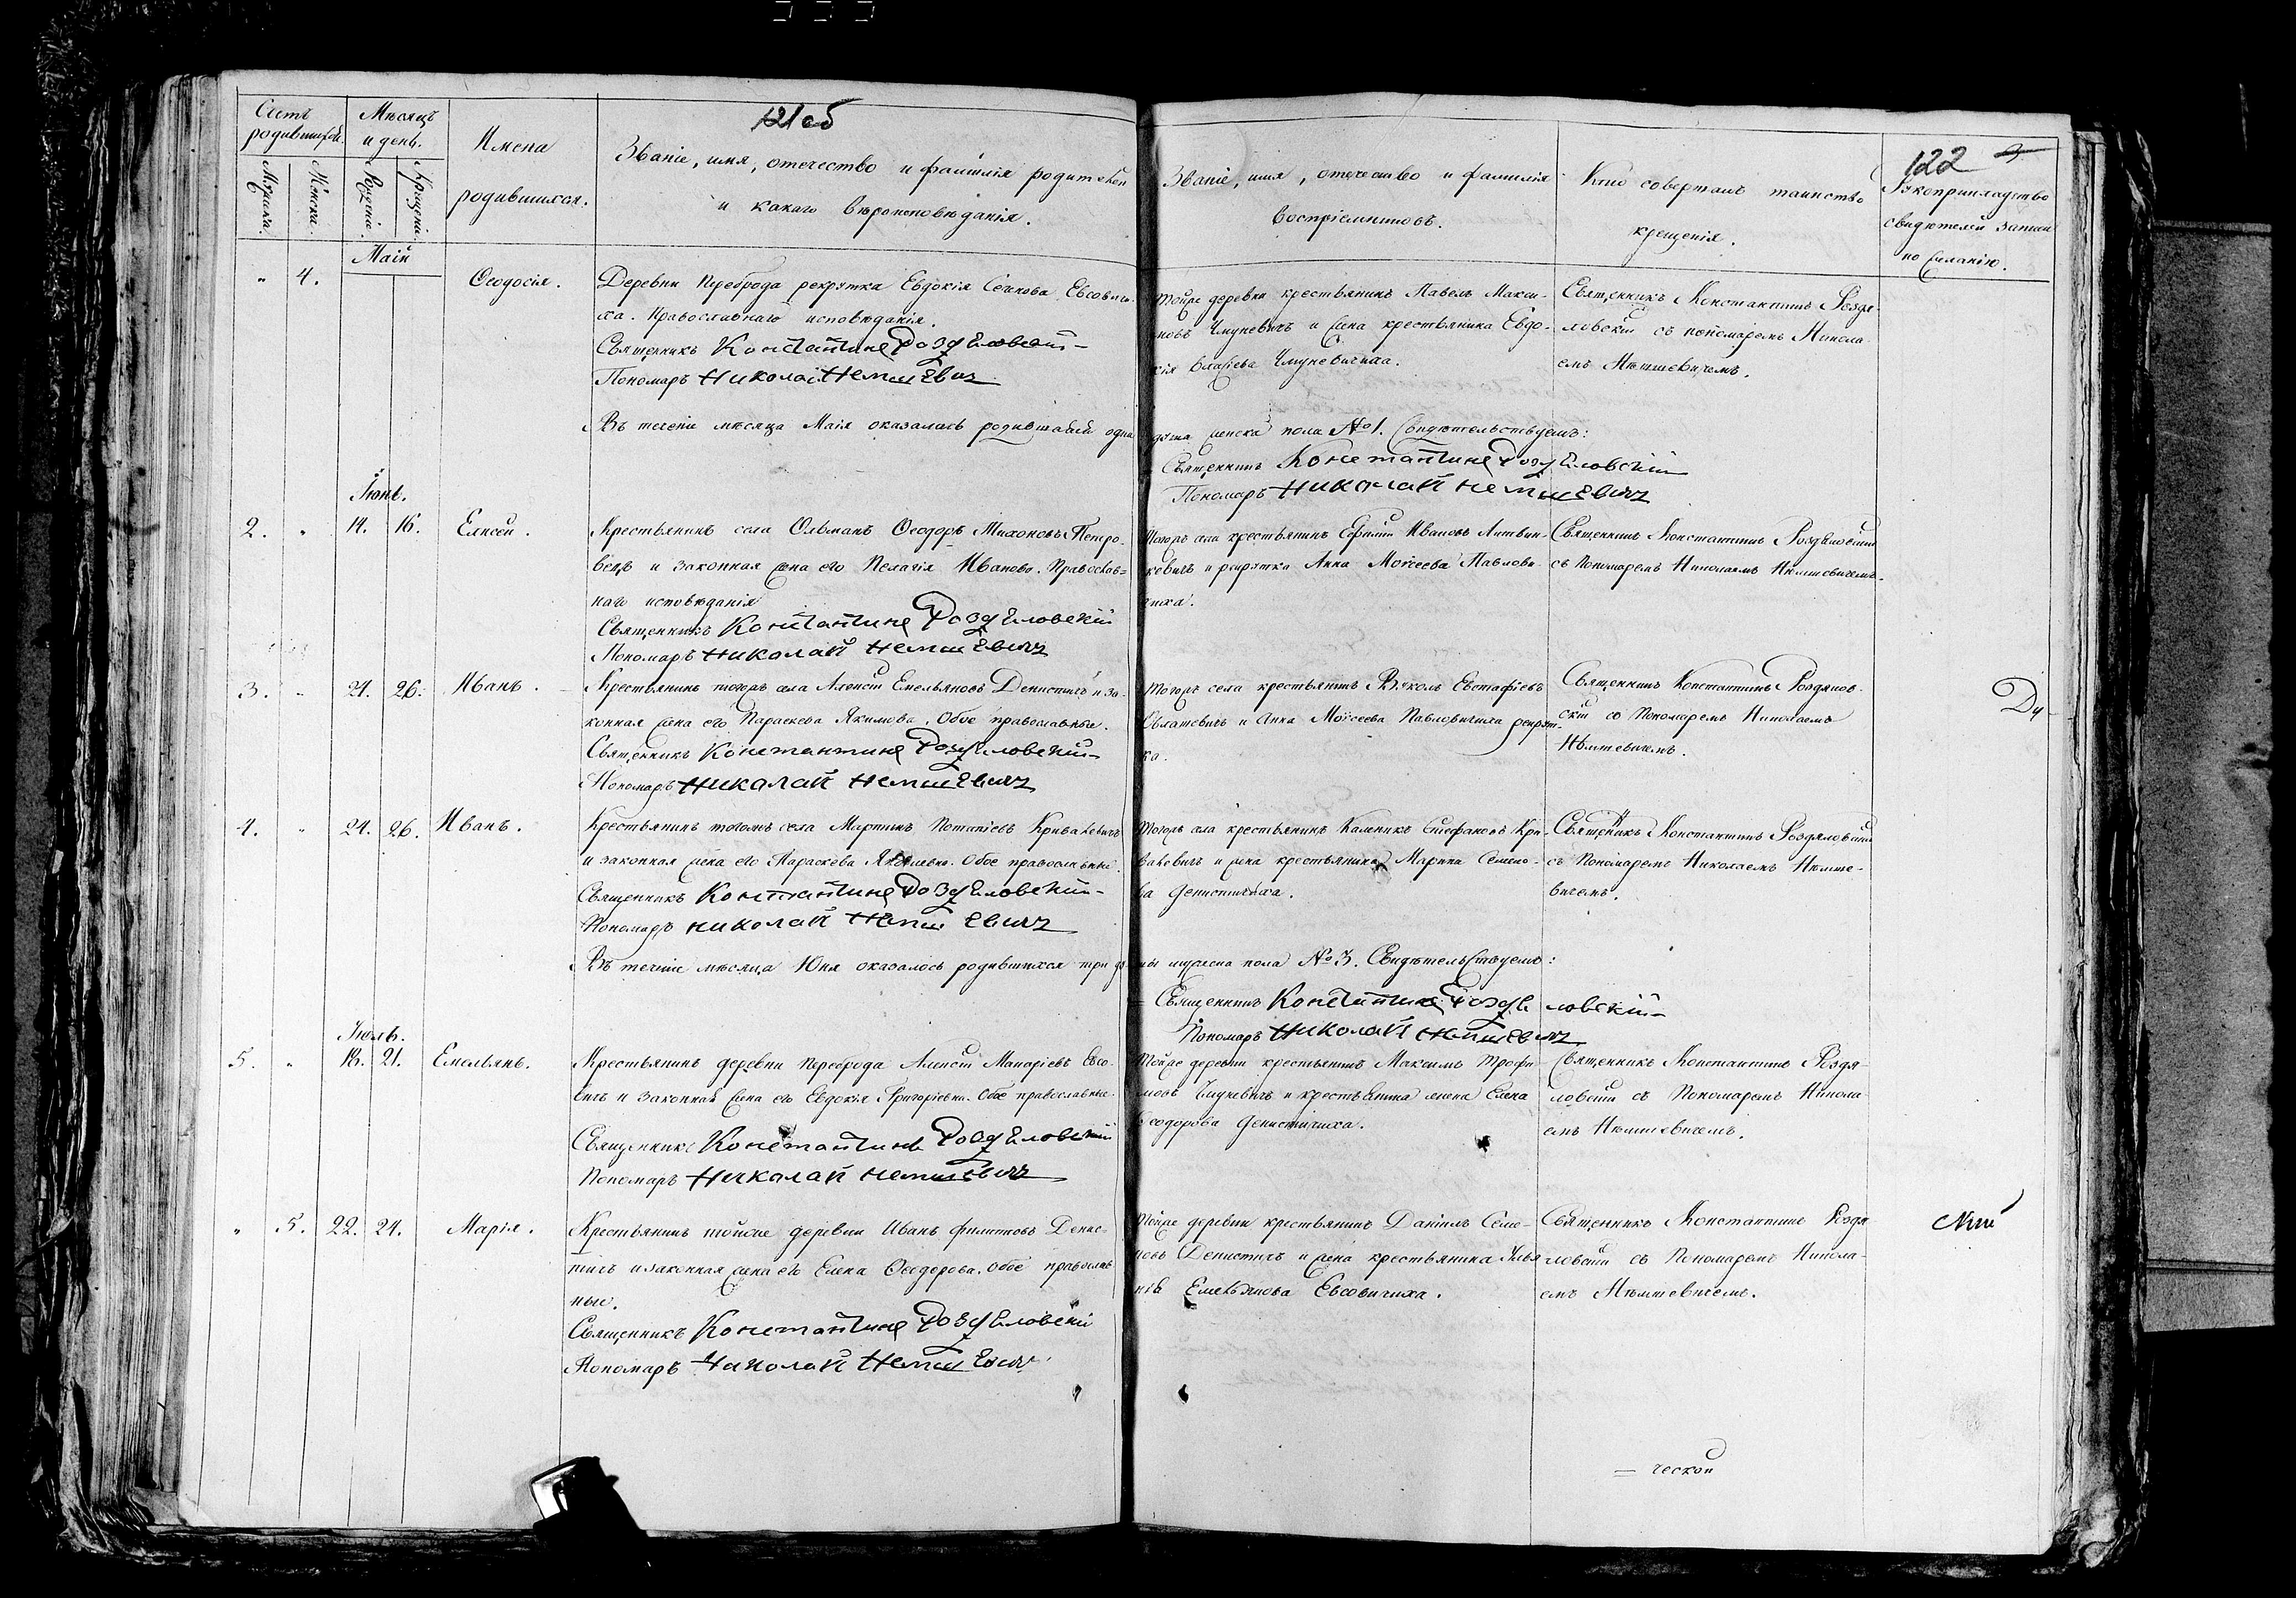 121 об
122
Счетъ родившихся.
Мужска.
Женска.
Мѣсяцъ и день.
Рожденіе.
Крещеніе.
Имена родившихся.
Званіе, имя, отечество и фамилія родителей
и какаго вѣроисповѣданія.
Званіе, имя, отечество и фамилія
воспріемниковъ.
Кто совершалъ таинство
крещенія.
Рукоприкладство
свидѣтелей записи
по желанію.
Маій
" 4. Ѳеодосія.
Деревни Переброда рекрутка Евдокія Евсович-
ха. Православнаго исповѣданія.
Священникъ Константинъ Роздяловскій
Пономаръ Николай Немшевичъ
Тойже деревни крестьянинъ Павелъ Макси-
мовъ и жена крестьянина Евдо-
кія Власіева
Священникъ Константинъ Роздя-
ловскій съ пономаремъ Никола-
емъ Нѣмшевичемъ.
Въ теченіе мѣсяца Маія оказалась родившаяся одна
душа женска пола №1. Свидѣтельствуемъ:
Священникъ Константинъ Роздяловскій
Пономаръ Николай Немшевичъ
Іюнь.
2. " 14. 16. Елисей.
Крестьянинъ села Ольманъ Ѳеодоръ Тихоновъ Петро-
вецъ и законная жена его Пелагія Иванова. Православ-
наго исповѣданія
Священникъ Константинъ Роздяловскій
Пономаръ Николай Немшевичъ
Тогожъ села крестьянинъ Ефимій Ивановъ Литвин-
кевичъ и рекрутка Анна Моисеева Павлови-
чиха.
Священникъ Константинъ Роздяловскій
съ Пономаремъ Николаемъ Нѣмшевичемъ.
3. " 21. 26. Иванъ.
Крестьянинъ тогожъ села Алексій Емельяновъ Денисчичъ и за-
конная жена его Параскева Якимова. Обое православные.
Священникъ Константинъ Роздяловскій
Пономаръ Николай Немшевичъ
Тогожъ села крестьянинъ Евстафіевъ
и Анна Моисеева Павловичиха рекрут-
ка.
Священникъ Константинъ Роздялов-
скій со Пономаремъ Николаемъ
Нѣмшевичемъ.
Ду
4. " 24. 26. Иванъ.
Крестьянинъ тогожъ села Мартинъ Потапіевъ Кривакевичъ
и законная жена его Параскева Яковлевна. Обое православные.
Священникъ Константинъ Роздяловскій
Пономаръ Николай Немшевичъ
Тогожъ села крестьянинъ Каленикъ Стефановъ Кри-
вакевичъ и жена крестьянина Марина Семено-
ва Денисчичиха.
Священникъ Константинъ Роздяловскій
съ Пономаремъ Николаемъ Нѣмше-
вичемъ.
Въ теченіе мѣсяца Юня оказалось родившихся три ду-
ши мужеска пола №3. Свидѣтельствуемъ:
Священникъ Константинъ Роздяловскій
Пономаръ Николай Немшевичъ
Іюль.
5. " 18. 21. Емельянъ.
Крестьянинъ деревни Переброда Алексій Макаріевъ Евсо-
вичъ и законная жена его Евдокія Григоріевна. Обое православные.
Священникъ Константинъ Роздяловскій
Пономаръ Николай Немшевичъ
Тойже деревни крестьянинъ Максимъ Трофи-
мовъ и крестьянина жена Елена
Ѳеодорова Денисчичиха.
Священникъ Константинъ Роздя-
ловскій съ Пономаремъ Никола-
емъ Нѣмшевичемъ.
" 5. 22. 24. Марія.
Крестьянинъ тойже деревни Иванъ Филиповъ Денис-
чичъ и законная жена его Елена Ѳеодорова. Обое православ
ные.
Священникъ Константинъ Роздяловскій
Пономаръ Николай Немшевичъ
Тойже деревни крестьянинъ Даніилъ Семе-
новъ Денисчичъ и жена крестьянина Улья-
нія Емельянова Евсовичиха.
Священникъ Константинъ Роздя
ловскій съ Пономаремъ Никола-
емъ Нѣмшевичемъ.
= ческой